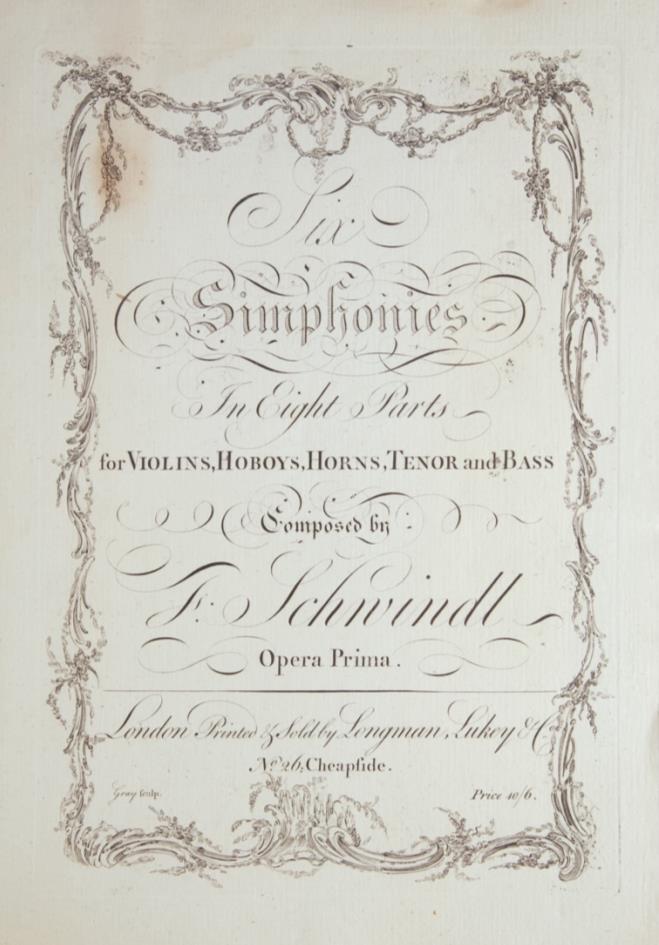 Six
Simphonies
In Eight Parts
for VIOLINS, HOBOYS, HORNS, TENOR and BASS
Composed by
F. Schwindl
Opera Prima.
London Printed & Sold by Longman, Lukey & Co.
No. 26, Cheapſide.
Gray ſculp.
Price 10/6.